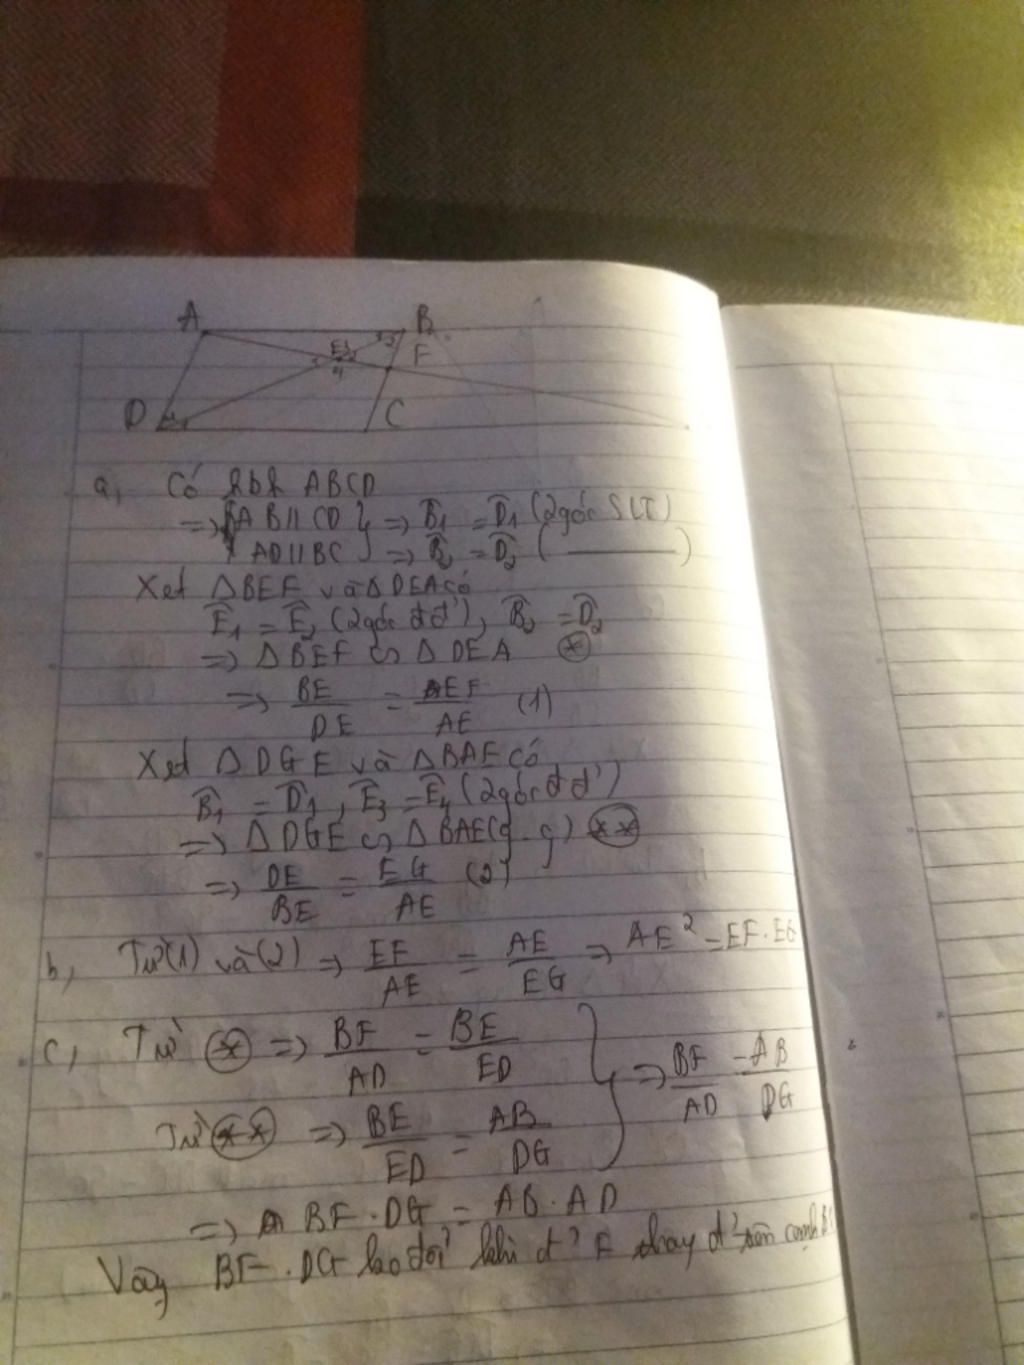 A B
E 3 1 2
F
4
D C
a, Có hbh ABCD
=> { AB // CD } => B̂1 = D̂1 (2 góc SLT)
{ AD // BC } => B̂2 = D̂2 ( ——— )
Xét ΔBEF và ΔDEA có
Ê1 = Ê2 (2 góc đđ'), B̂2 = D̂2
=> ΔBEF ∽ ΔDEA (*)
=> BE/DE = EF/AE (1)
Xét ΔDGE và ΔBAE có
B̂1 = D̂1, Ê3 = Ê4 (2 góc đđ')
=> ΔDGE ∽ ΔBAE (g.g) (**)
=> DE/BE = EG/AE (2)
b, Từ (1) và (2) => EF/AE = AE/EG => AE² = EF.EG
c, Từ (*) => BF/AD = BE/ED } => BF/AD = AB/DG
Từ (**) => BE/ED = AB/DG
=> BF.DG = AB.AD
Vậy BF.DG ko đổi khi đ' F thay đ' trên cạnh